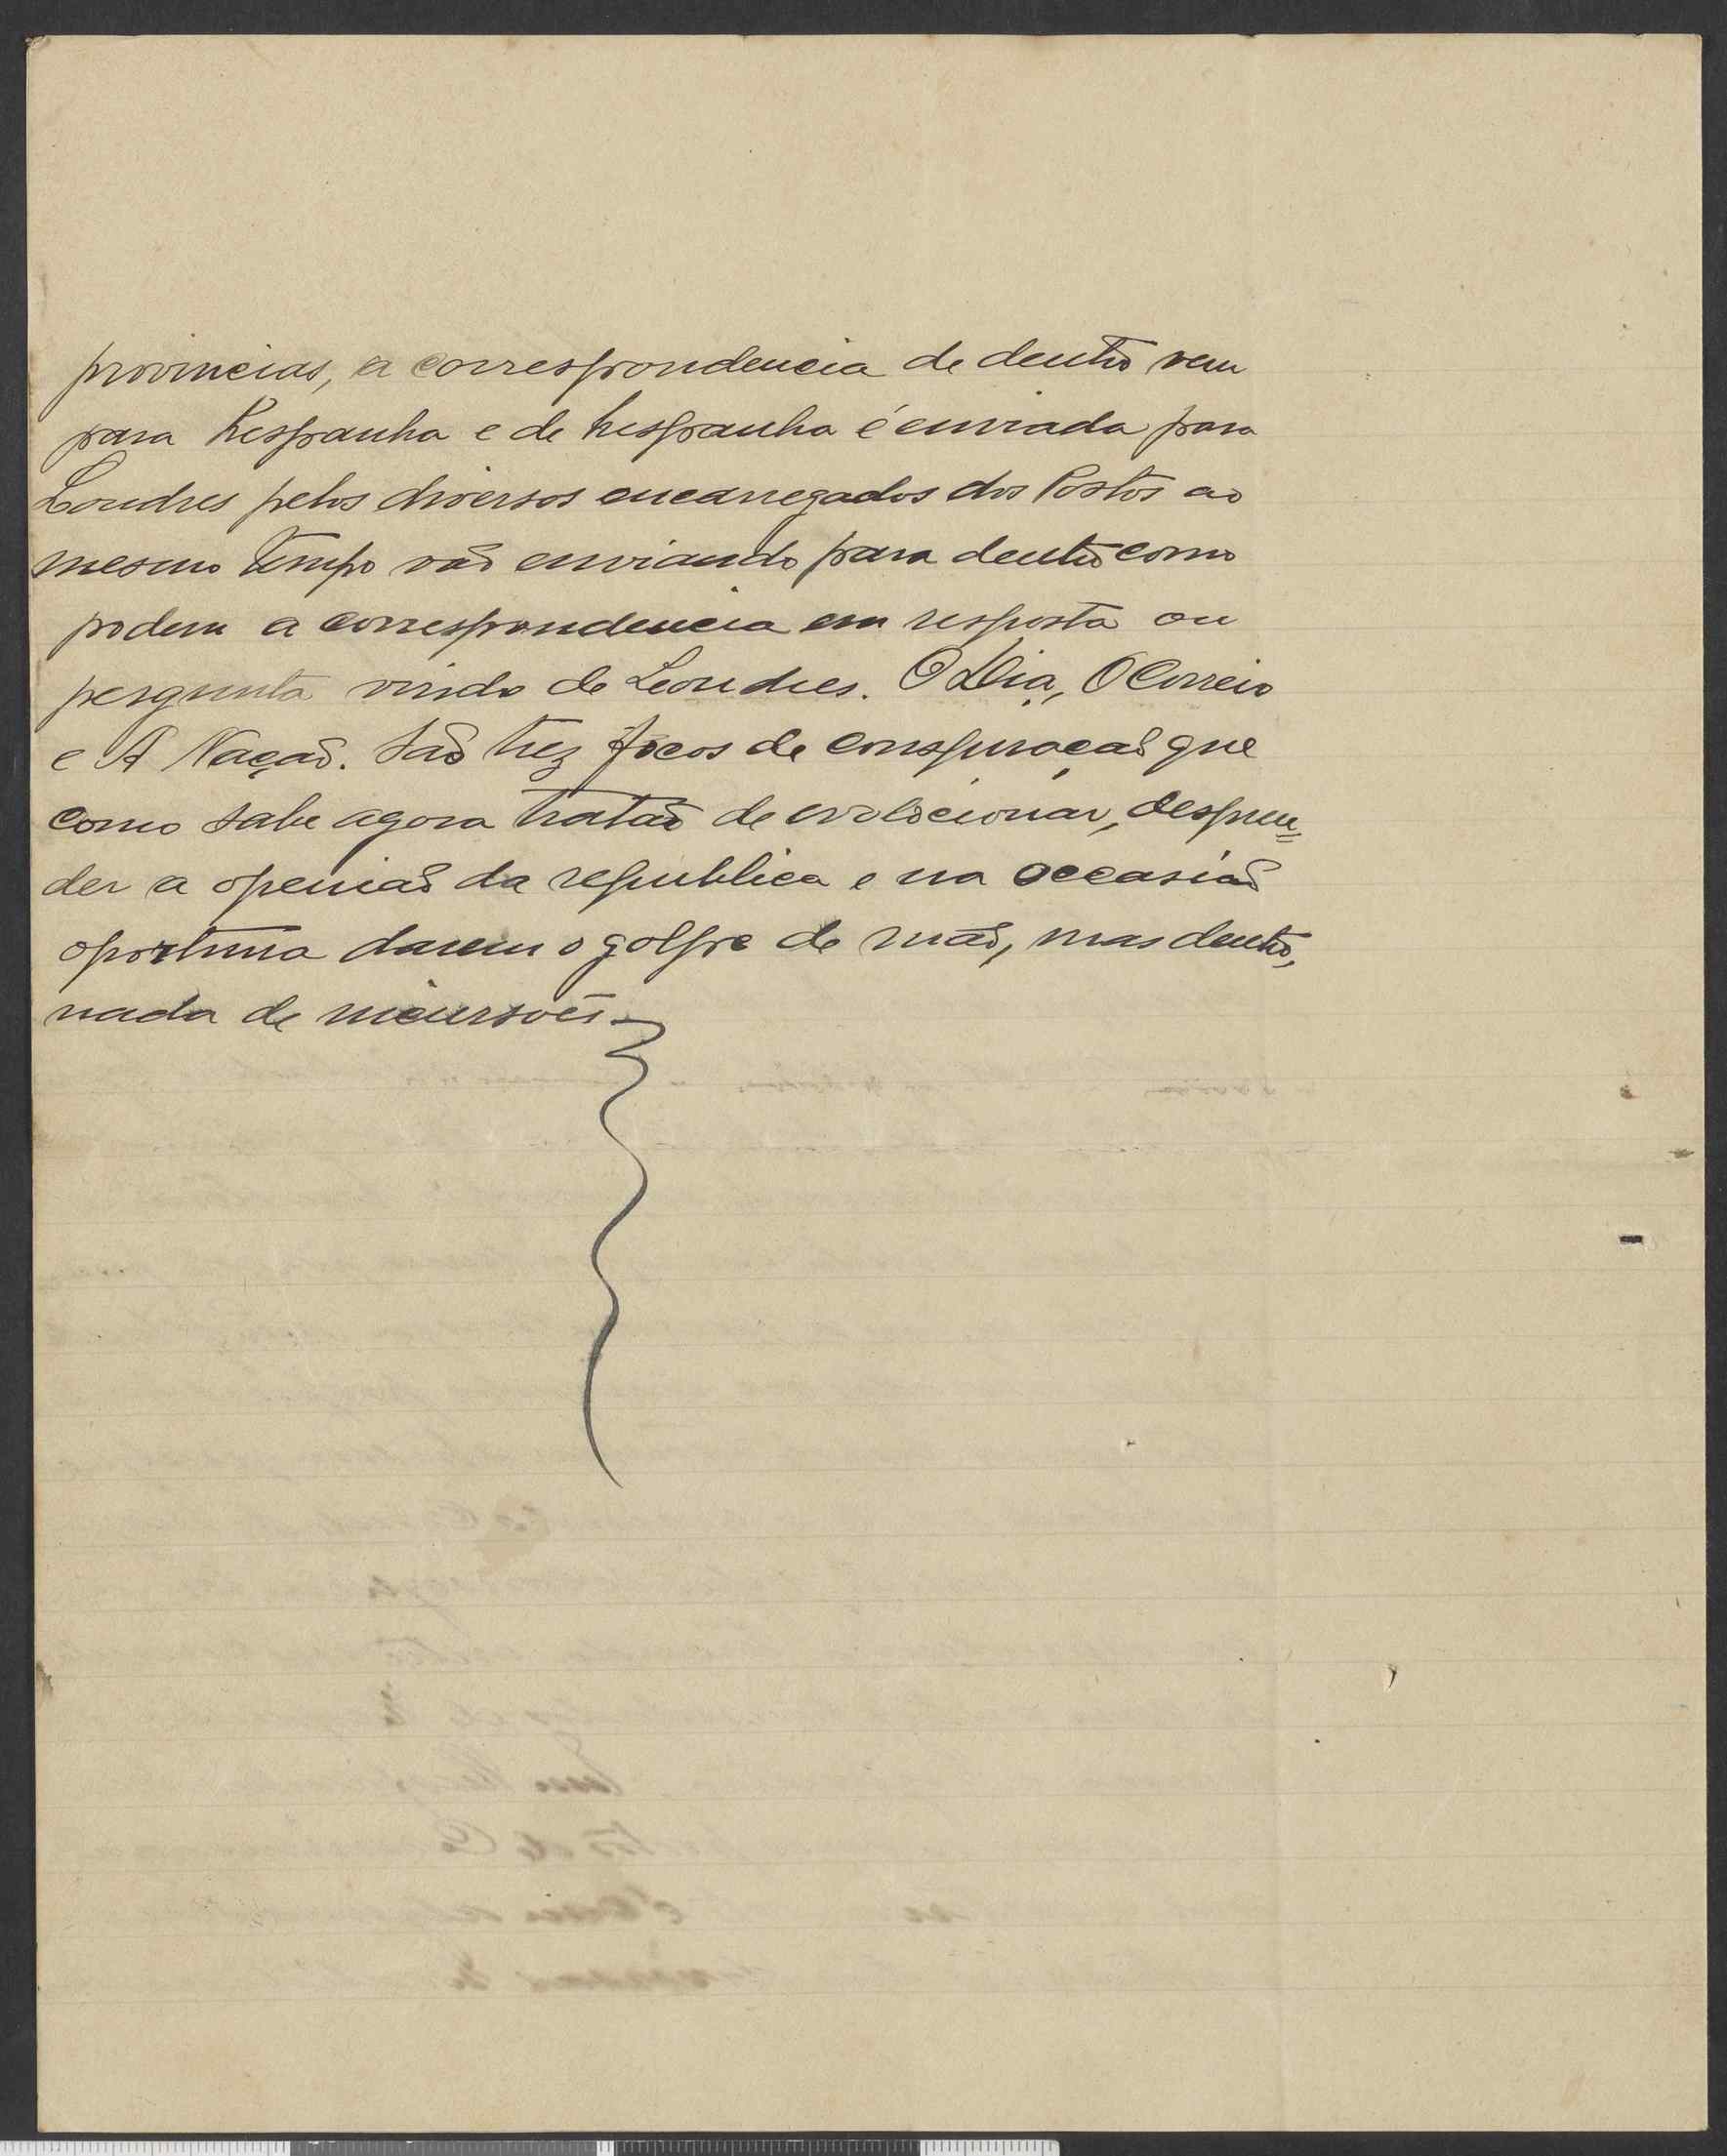 provincias, a correspondencia de dentro vem
para Hespanha e de hespanha é enviada para
Londres pelos diversos encarregados dos Postos ao
mesmo tempo vão enviando para dentro como
podem a correspondencia em resposta ou
pergunta vindo de Londres. O Dia, O Correio
e A Nação. São trez focos de conspiração que
como sabe agora tratão de evolocionar, despren=
der a openião da republica e na occasião
oportuna darem o golpe de mão, mas dentro,
nada de incursões.